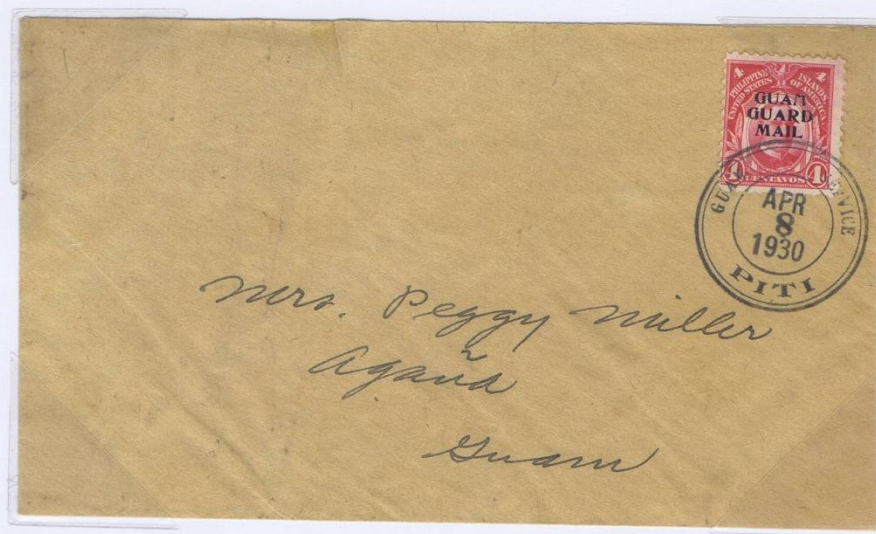 4 PHILIPPINE ISLANDS 4
UNITED STATES OF AMERICA
GUAM
GUARD
MAIL
4 CENTAVOS 4
APR
8
1930
PITI
Mrs. Peggy Miller
Agaña
Guam